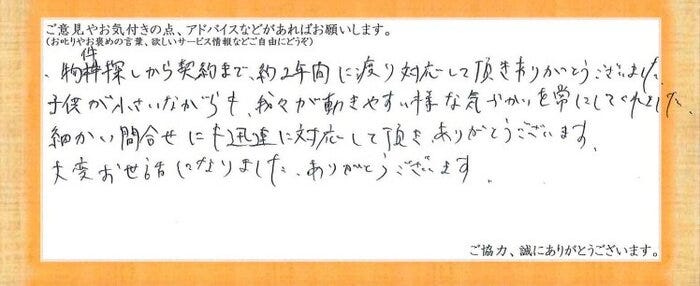 ご意見やお気付きの点、アドバイスなどがあればお願いします。
(お叱りやお褒めの言葉、欲しいサービス情報などご自由にどうぞ)
・物件探しから契約まで、約2年間に渡り対応して頂きありがとうございました。
子供が小さいながらも、我々が動きやすい様な気づかいを常にしてくれました。
細かい問合せにも迅速に対応して頂き、ありがとうございます。
大変お世話になりました、ありがとうございます
ご協力、誠にありがとうございます。